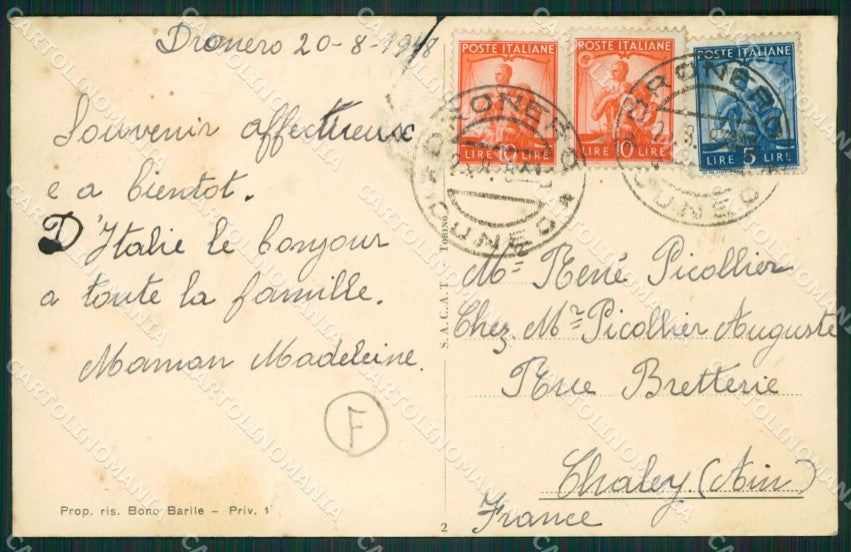 Dronero 20-8-1948
Souvenir affectueux
e a bientot.
D'Italie le bonjour
a toute la famille.
Maman Madeleine.
F
Prop. ris. Bono Barile - Priv. 1
S.A.C.A.T. TORINO
2
POSTE ITALIANE
LIRE 10 LIRE
POSTE ITALIANE
LIRE 10 LIRE
POSTE ITALIANE
LIRE 5 LIRE
DRONERO
CUNEO
DRONERO
CUNEO
Mr René Picollier
Chez Mr Picollier Auguste
Rue Bretterie
Chaley (Ain)
France
CARTOLINOMANIA